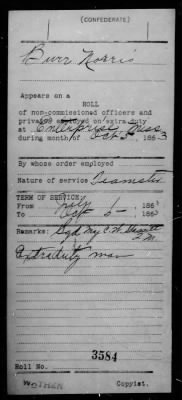 (CONFEDERATE)
Burr Norris
Appears on a
ROLL
of non-commissioned officers and
privates employed on extra duty
at Enterprise, Miss
during month of Oct 186 3
By whose order employed
Nature of service Teamster
TERM OF SERVICE:
From 186 3
To Oct 6 186 3
Remarks: Sgd
Extra duty man
3584
Roll No.
Copyist.